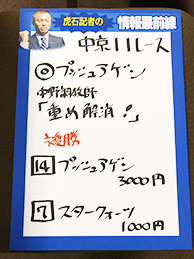 虎石記者の
情報最前線
中京11レース
◎プッシュアゲン
中野調教師
「重め解消!」
複勝
14 プッシュアゲン
3000円
7 スタークォーツ
1000円